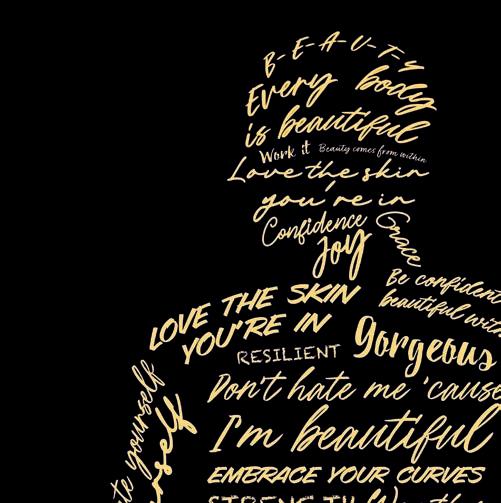 B-E-A-U-T-Y
Every body
is beautiful
Work it Beauty comes from within
Love the skin
you're in
Confidence
Grace
Joy
Be confident
beautiful with
LOVE THE SKIN
YOU'RE IN
RESILIENT
gorgeous
Don't hate me 'cause
I'm beautiful
EMBRACE YOUR CURVES
yourself